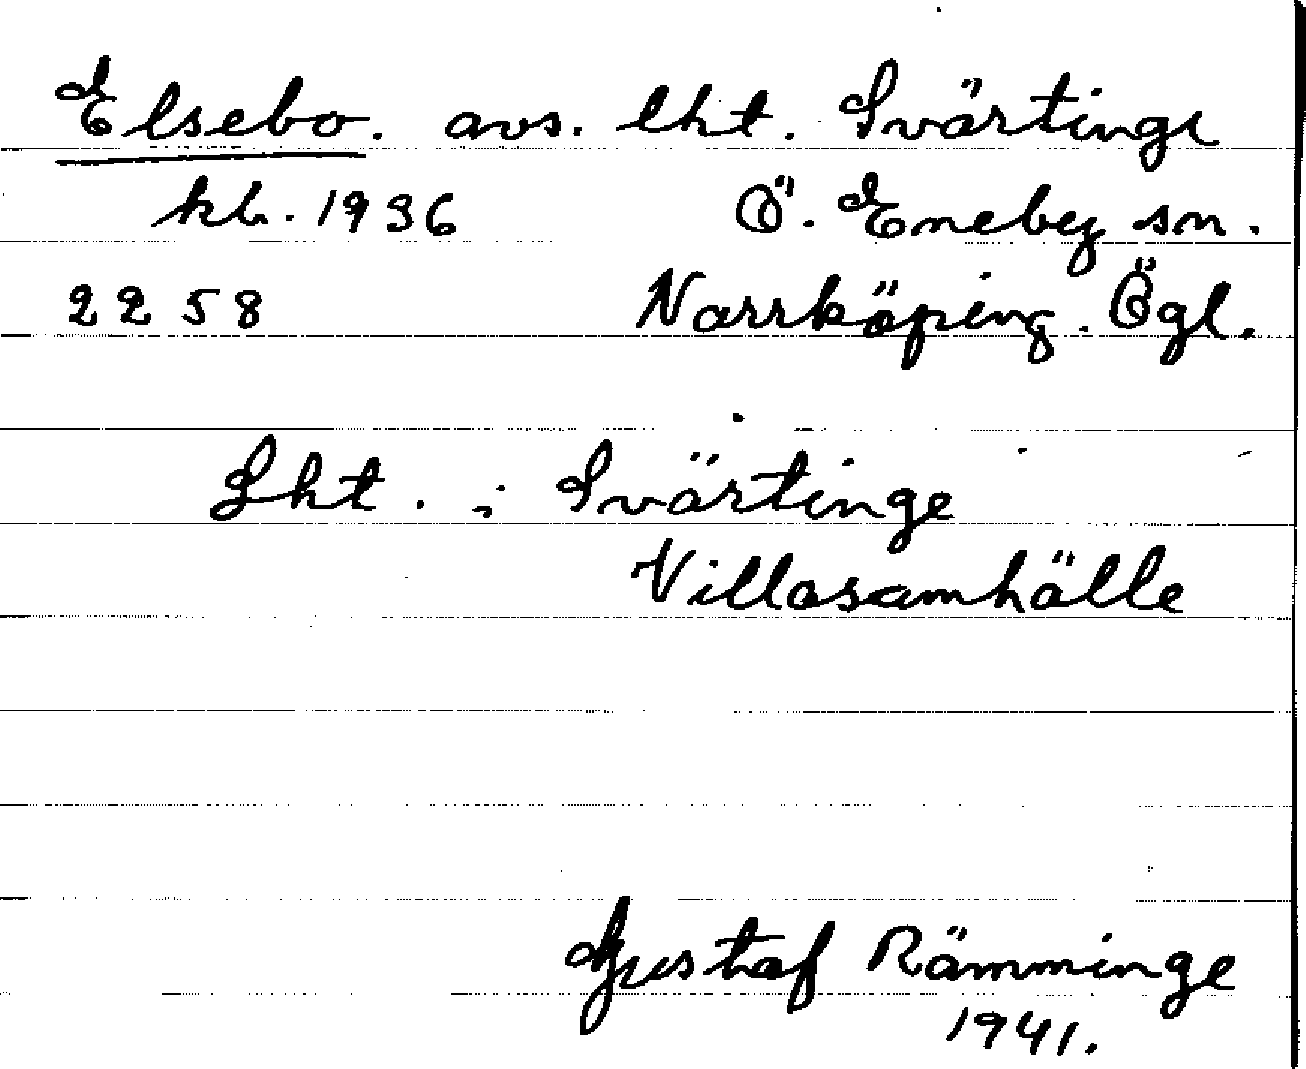 Elsebo. avs. lht. Svärtinge
kb. 1936 Ö. Eneby sn.
2258 Norrköping. Ögl.
Lht. i Svärtinge
Villasamhälle
Gustaf Rämminge
1941.